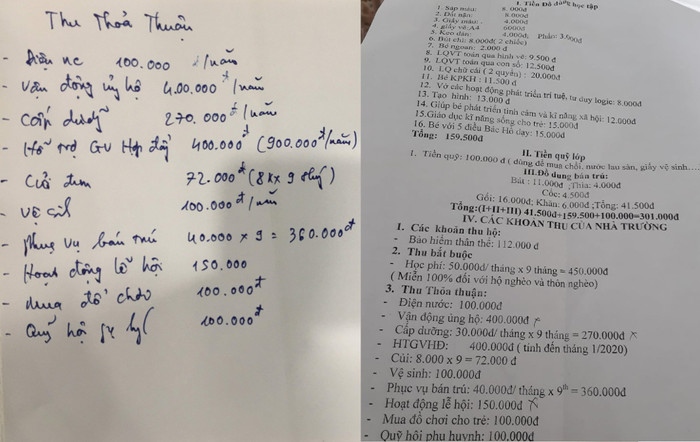 Thu Thoả Thuân
- Điện nc 100.000 đ/năm
- Vận động ủng hộ 400.000đ/năm
- Cấp dưỡng 270.000đ/năm
- Hỗ trợ GV Hợp đg 400.000đ (900.000đ/năm)
- Củi đun 72.000đ (8k x 9 thg)
- Vệ sinh 100.000đ/năm
- Phục vụ bán trú 40.000 x 9 = 360.000đ
- Hoạt động lễ hội 150.000
- mua đồ chơi 100.000đ
- Quỹ hội 100.000đ
I. Tiền Đồ dùng học tập
1. Sáp màu: 8.000đ
2. Đất nặn: 8.000đ
3. Giấy màu: 4.000đ
4. giấy vẽ A4 6000đ
5. Keo dán: 4.000đ; Phấn: 3.000đ
6. Bút chì: 8.000đ( 2 chiếc)
7. Bé ngoan: 2.000 đ
8. LQVT toán qua hình vẽ: 9.500 đ
9. LQVT toán qua con số: 12.500đ
10. LQ chữ cái ( 2 quyển) : 20.000đ
11. Bé KPKH : 11.500 đ
12. Vở các hoạt động phát triển trí tuệ, tư duy logic: 8.000đ
13. Tạo hình: 13.000 đ
14. Giúp bé phát triển tình cảm và kĩ năng xã hội: 12.000đ
15.Giáo dục kĩ năng sống cho trẻ: 15.000đ
16. Bé với 5 điều Bác Hồ dạy: 15.000đ
Tổng: 159.500đ
II. Tiền quỹ lớp
1. Tiền quỹ: 100.000 đ ( dùng để mua chổi, nước lau sàn, giấy vệ sinh....)
III.Đồ dung bán trú:
Bát : 11.000đ ;Thìa: 4.000đ
Cốc: 4.500đ
Gối: 16.000đ; Khăn: 6.000đ ;Tổng: 41.500đ
Tổng:(I+II+III) 41.500đ+159.500+100.000=301.000đ
IV. CÁC KHOẢN THU CỦA NHÀ TRƯỜNG
1. Các khoản thu hộ:
- Bảo hiểm thân thể: 112.000 đ
2. Thu bắt buộc
- Học phí: 50.000đ/ tháng x 9 tháng = 450.000đ
( Miễn 100% đối với hộ nghèo và thôn nghèo)
3. Thu Thỏa thuận:
- Điện nước: 100.000đ
- Vận động ủng hộ: 400.000đ
- Cấp dưỡng: 30.000đ/ tháng x 9 tháng = 270.000đ
- HTGVHĐ: 400.000đ ( tính đến tháng 1/2020)
- Củi: 8.000 x 9 = 72.000 đ
- Vệ sinh: 100.000đ
- Phục vụ bán trú: 40.000đ/ tháng x 9th = 360.000đ
- Hoạt động lễ hội: 150.000đ
- Mua đồ chơi cho trẻ: 100.000đ
- Quỹ hội phụ huynh: 100.000đ